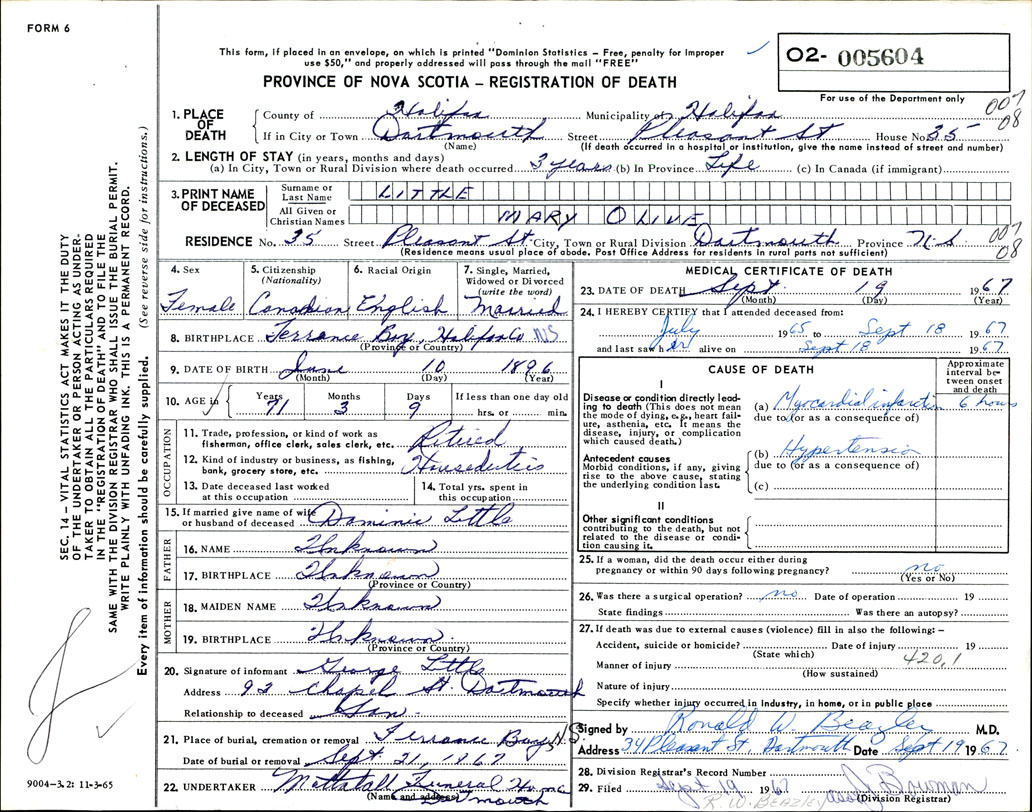 FORM 6
This form, if placed in an envelope, on which is printed "Dominion Statistics – Free, penalty for improper
use $50," and properly addressed will pass through the mail "FREE"
O2- 005604
PROVINCE OF NOVA SCOTIA – REGISTRATION OF DEATH
For use of the Department only
007
08
1. PLACE OF DEATH
County of Halifax Municipality of Halifax
If in City or Town Dartmouth Street Pleasant St House No. 35
(Name) (If death occurred in a hospital or institution, give the name instead of street and number)
2. LENGTH OF STAY (in years, months and days)
(a) In City, Town or Rural Division where death occurred 3 years (b) In Province Life (c) In Canada (if immigrant)
3. PRINT NAME OF DECEASED
Surname or Last Name LITTLE
All Given or Christian Names MARY OLIVE
RESIDENCE No. 35 Street Pleasant St City, Town or Rural Division Dartmouth Province N.S
(Residence means usual place of abode. Post Office Address for residents in rural parts not sufficient)
007
08
4. Sex
Female
5. Citizenship
(Nationality)
Canadian
6. Racial Origin
English
7. Single, Married,
Widowed or Divorced
(write the word)
Married
8. BIRTHPLACE Terrance Bay, Halifax Co NS
(Province or Country)
9. DATE OF BIRTH June 10 1896
(Month) (Day) (Year)
10. AGE in
Years Months Days If less than one day old
71 3 9 hrs. or min.
OCCUPATION
11. Trade, profession, or kind of work as
fisherman, office clerk, sales clerk, etc. Retired
12. Kind of industry or business, as fishing,
bank, grocery store, etc. Houseduties
13. Date deceased last worked
at this occupation
14. Total yrs. spent in
this occupation
15. If married give name of wife
or husband of deceased Dominic Little
FATHER
16. NAME Unknown
17. BIRTHPLACE Unknown
(Province or Country)
MOTHER
18. MAIDEN NAME Unknown
19. BIRTHPLACE Unknown
(Province or Country)
20. Signature of informant George Little
Address 92 Chapel St. Dartmouth
Relationship to deceased Son
21. Place of burial, cremation or removal Terrance Bay N.S.
Date of burial or removal Sept. 21, 1967
22. UNDERTAKER Mattatall Funeral Home
(Name and address) mouth
MEDICAL CERTIFICATE OF DEATH
23. DATE OF DEATH Sept 19 1967
(Month) (Day) (Year)
24. I HEREBY CERTIFY that I attended deceased from:
July 1965 to Sept 18 1967
and last saw her alive on Sept 18 1967
CAUSE OF DEATH
Approximate
interval be-
tween onset
and death
I
Disease or condition directly lead-
ing to death (This does not mean
the mode of dying, e.g., heart fail-
ure, asthenia, etc. It means the
disease, injury, or complication
which caused death.)
(a) Myocardial infarction 6 hours
due to (or as a consequence of)
Antecedent causes
Morbid conditions, if any, giving
rise to the above cause, stating
the underlying condition last.
(b) Hypertension
due to (or as a consequence of)
(c)
II
Other significant conditions
contributing to the death, but not
related to the disease or condi-
tion causing it.
25. If a woman, did the death occur either during
pregnancy or within 90 days following pregnancy? no
(Yes or No)
26. Was there a surgical operation? no Date of operation 19
State findings Was there an autopsy?
27. If death was due to external causes (violence) fill in also the following: –
Accident, suicide or homicide? Date of injury 19
(State which) 420.1
Manner of injury
(How sustained)
Nature of injury
Specify whether injury occurred in industry, in home, or in public place
Signed by Ronald W. Beazley M.D.
Address 34 Pleasant St Dartmouth Date Sept 19 1967
28. Division Registrar's Record Number
29. Filed Sept 19 1967 Bowman
R. W. BEAZLEY (Division Registrar)
SEC. 14 – VITAL STATISTICS ACT MAKES IT THE DUTY
OF THE UNDERTAKER OR PERSON ACTING AS UNDER-
TAKER TO OBTAIN ALL THE PARTICULARS REQUIRED
IN THE "REGISTRATION OF DEATH" AND TO FILE THE
SAME WITH THE DIVISION REGISTRAR WHO SHALL ISSUE THE BURIAL PERMIT.
WRITE PLAINLY WITH UNFADING INK. THIS IS A PERMANENT RECORD.
Every item of information should be carefully supplied. (See reverse side for instructions.)
9004-3.2: 11-3-65